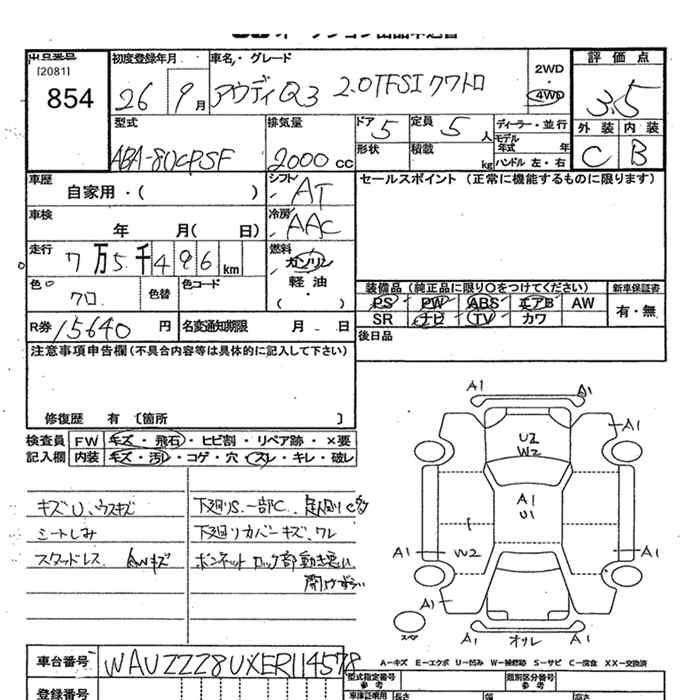 出品番号
[2081]
854
初度登録年月
26 9月
車名・グレード
アウディ Q3 2.0TFSI クワトロ
2WD
・
4WD
評価点
3.5
外装 内装
C B
型式
ABA-8UCPSF
排気量
2000cc
ドア 5
定員 5人
形状
積載 kg
ディーラー・並行
モデル年式 年
ハンドル 左・右
車歴
自家用・( )
シフト
AT
セールスポイント (正常に機能するものに限ります)
車検
年 月( 日)
冷房
AAC
走行
7万5千496km
燃料
ガソリン
軽油
( )
色
クロ
色替
色コード
装備品 (純正品に限り○をつけてください)
新車保証書
PS PW ABS エアB AW
SR ナビ TV カワ
有・無
R券 15640円
名変通知期限 月 日
後日品
注意事項申告欄(不具合内容等は具体的に記入して下さい)
修復歴 有 〔箇所 〕
検査員
記入欄
FW キズ・飛石・ヒビ割・リペア跡・×要
内装 キズ・汚レ・コゲ・穴・スレ・キレ・破レ
キズU、ウスキズ
シートしみ
スタッドレス AWキズ
下廻りS、一部C
下廻りカバーキズ、ワレ
ボンネットロック部動き悪い
開けずらい
A1 A1
A1
U2
W2
A1
U1
A1 W2 A1
A1
スペア
A1 オリレ A1
A-キズ E-エクボ U-凹み W-補修跡 S-サビ C-腐食 XX-交換済
車台番号 WAUZZZ8UXER114578
登録番号
型式指定番号
参考
類別区分番号
参考
長さ 幅 高さ